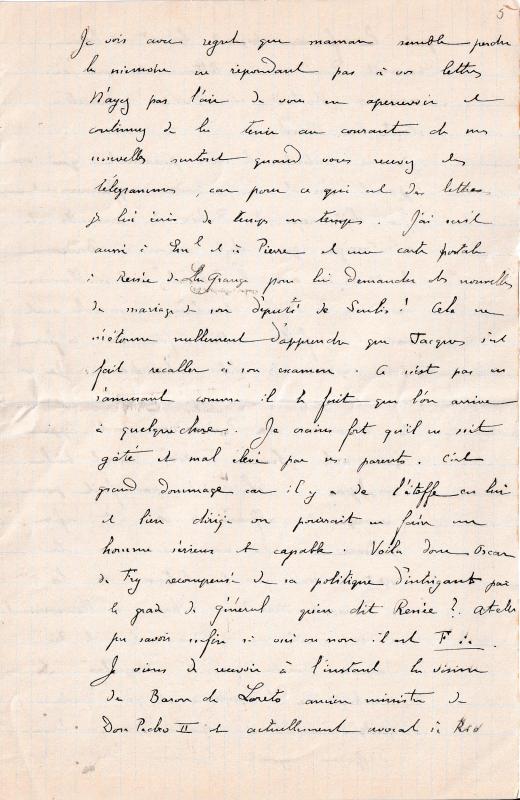 5
Je vois avec regret que maman semble perdre
la mémoire en répondant pas à vos lettres
N'ayez pas l'air de vous en apercevoir et
continuez de la tenir au courant de nos
nouvelles surtout quand vous recevez des
télégrammes, car pour ce qui est des lettres
je lui écris de temps en temps. J'ai écrit
aussi à Em^l et à Pierre et une carte postale
à Renée de La Grange pour lui demander des nouvelles
du mariage de son député de Senlis! Cela ne
m'étonne nullement d'apprendre que Jacques s'est
fait recaller à son examen. Ce n'est pas en
s'amusant comme il le fait que l'on arrive
à quelquechose. Je crains fort qu'il ne soit
gâté et mal élevé par ses parents. C'est
grand dommage car il y a de l'étoffe en lui
et bien dirigé on pourrait en faire un
homme sérieux et capable. Voilà donc Oscar
de Fry recompensé de sa politique d'intrigant par
le grade de général qu'en dit Renée? at elle
pu savoir enfin si oui ou non il est F∴
Je viens de recevoir à l'instant la visite
du Baron de Loreto ancien ministre de
Don Pedro II et actuellement avocat à Rio